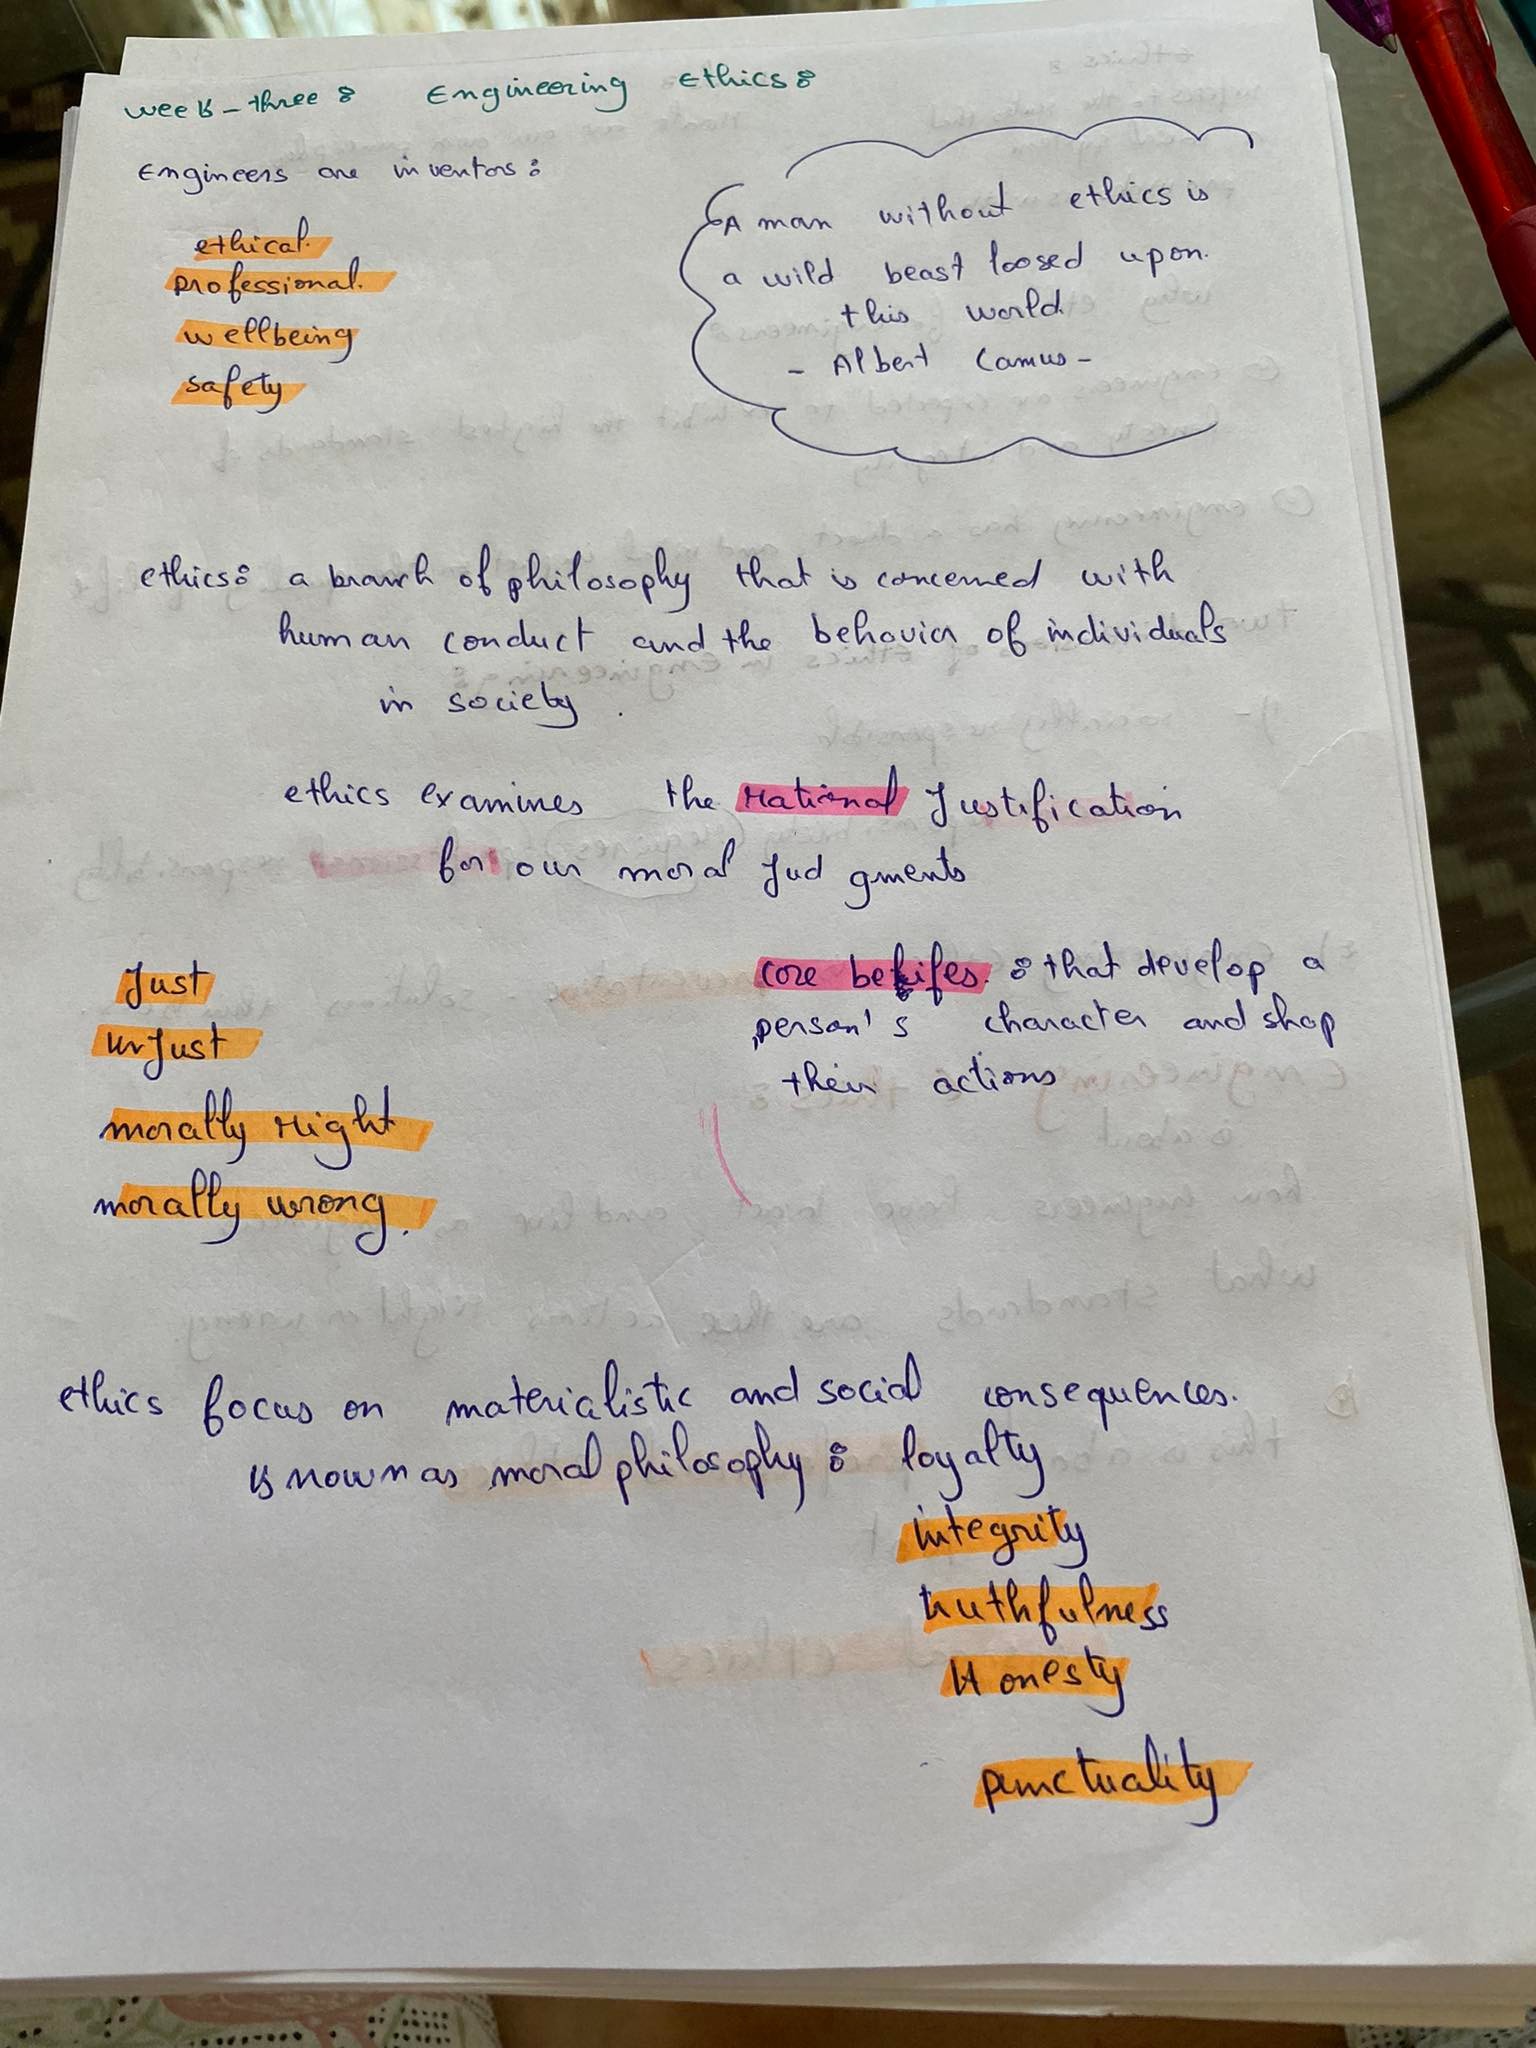 week-three: Engineering Ethics:
Engineers are inventors:
ethical.
professional.
wellbeing
safety
"A man without ethics is
a wild beast loosed upon.
this world.
- Albert Camus -
ethics: a branch of philosophy that is concerned with
human conduct and the behavior of individuals
in society.
ethics examines the rational Justification
for our moral Judgments
Just
unJust
morally right
morally wrong.
core belifes. : that develop a
person's character and shap
their actions
ethics focus on materialistic and social consequences.
known as moral philosophy: loyalty
integrity
truthfulness
Honesty
punctuality